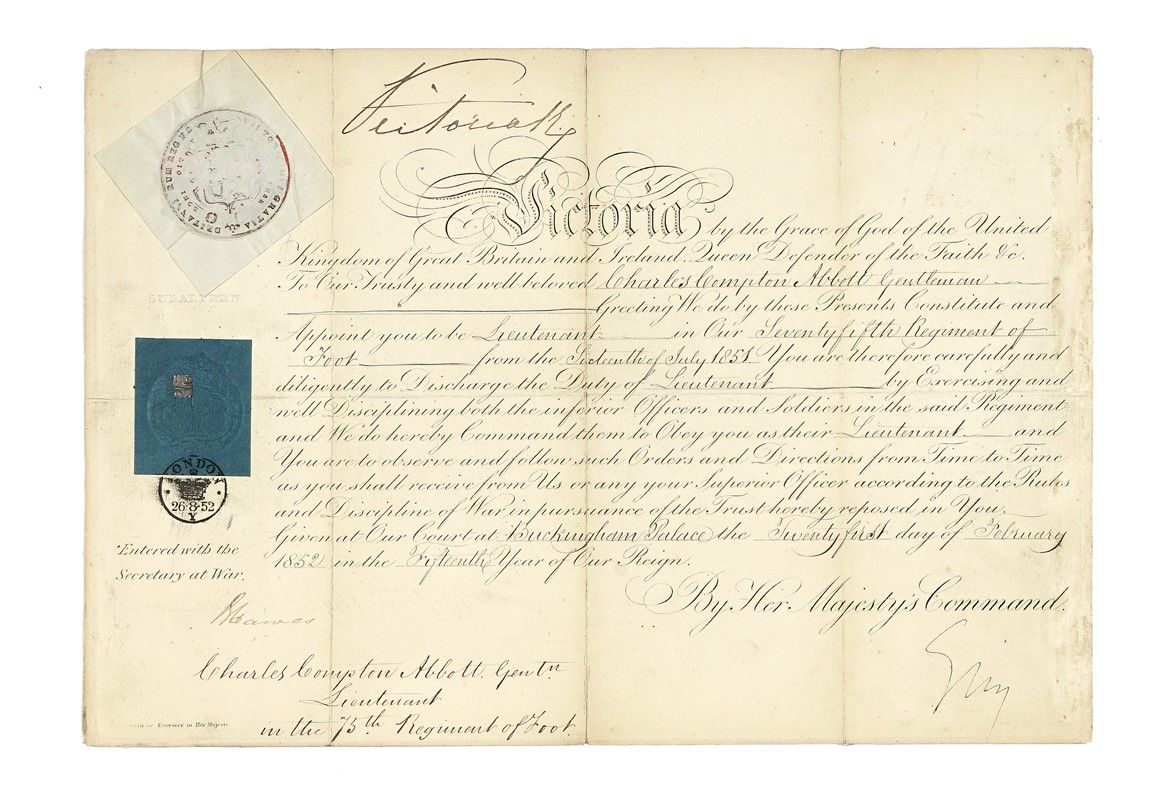 Victoria R
Victoria by the Grace of God of the United
Kingdom of Great Britain and Ireland. Queen Defender of the Faith &c.
To Our Trusty and well beloved Charles Compton Abbott Gentleman
Greeting We do by these Presents Constitute and
Appoint you to be Lieutenant in Our Seventy fifth Regiment of
Foot from the Sixteenth of July 1851. You are therefore carefully and
diligently to Discharge the Duty of Lieutenant by Exercising and
well Disciplining both the inferior Officers and Soldiers in the said Regiment
and We do hereby Command them to Obey you as their Lieutenant and
You are to observe and follow such Orders and Directions from Time to Time
as you shall receive from Us or any your Superior Officer according to the Rules
and Discipline of War in pursuance of the Trust hereby reposed in You.
Given at Our Court at Buckingham Palace the Twenty first day of February
1852 in the Fifteenth Year of Our Reign.
By Her Majesty's Command.
SUBALTERN.
LONDON
26·8·52
Y
Entered with the
Secretary at War.
Charles Compton Abbott. Gentn
Lieutenant
in the 75th Regiment of Foot
Engraver to Her Majesty
GRATIA BRITANNIARUM REG